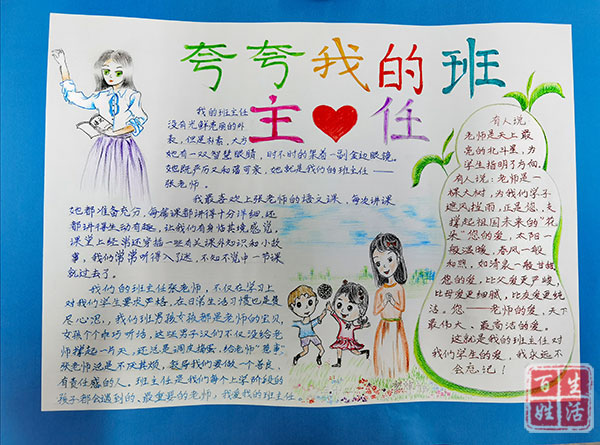 夸夸我的班
主任
我的班主任
没有光鲜老丽的外
表,但是朴素,大方
她有一双智慧眼睛,时不时的架着一副金边眼镜。
她既严厉又和蔼可亲,她就是我们的班主任——
张老师。
我最喜欢上张老师的语文课,每次讲课
她都准备充分,每篇课都讲得十分详细,还
都讲得生动有趣,让我们有身临其境感觉,
课堂上经常还穿插一些有关课外知识和小故
事,我们常常听得入了迷,不知不觉中一节课
就过去了。
我们的班主任张老师,不仅在学习上
对我们学生要求严格,在日常生活习惯也是费
尽心思,我们班男孩女孩都是老师的宝贝,
女孩个个乖巧听话,这些男子汉们不仅没给老师
撑起一片天,还总是调皮捣蛋,给老师"惹事"
张老师总是不厌其烦,教导我们要做一个善良,
有责任感的人,班主任是我们每个上学阶段的
孩子都会遇到的、最重要的老师,我爱我的班主任
有人说
老师是天上最
亮的北斗星,为
学生指明了方向。
有人说:老师是一
棵大树,为我们学子
遮风挡雨,正是您,支
撑起祖国未来的"花
朵"您的爱,太阳一
般温暖,春风一般
和煦,如清泉一般甘甜
您的爱,比父爱更严峻
比母爱更细腻,比友爱更纯
洁。您——老师的爱,天下
最伟大、最高洁的爱。
这就是我的班主任对
我们学生的爱,我永远不
会忘记!
百姓生活